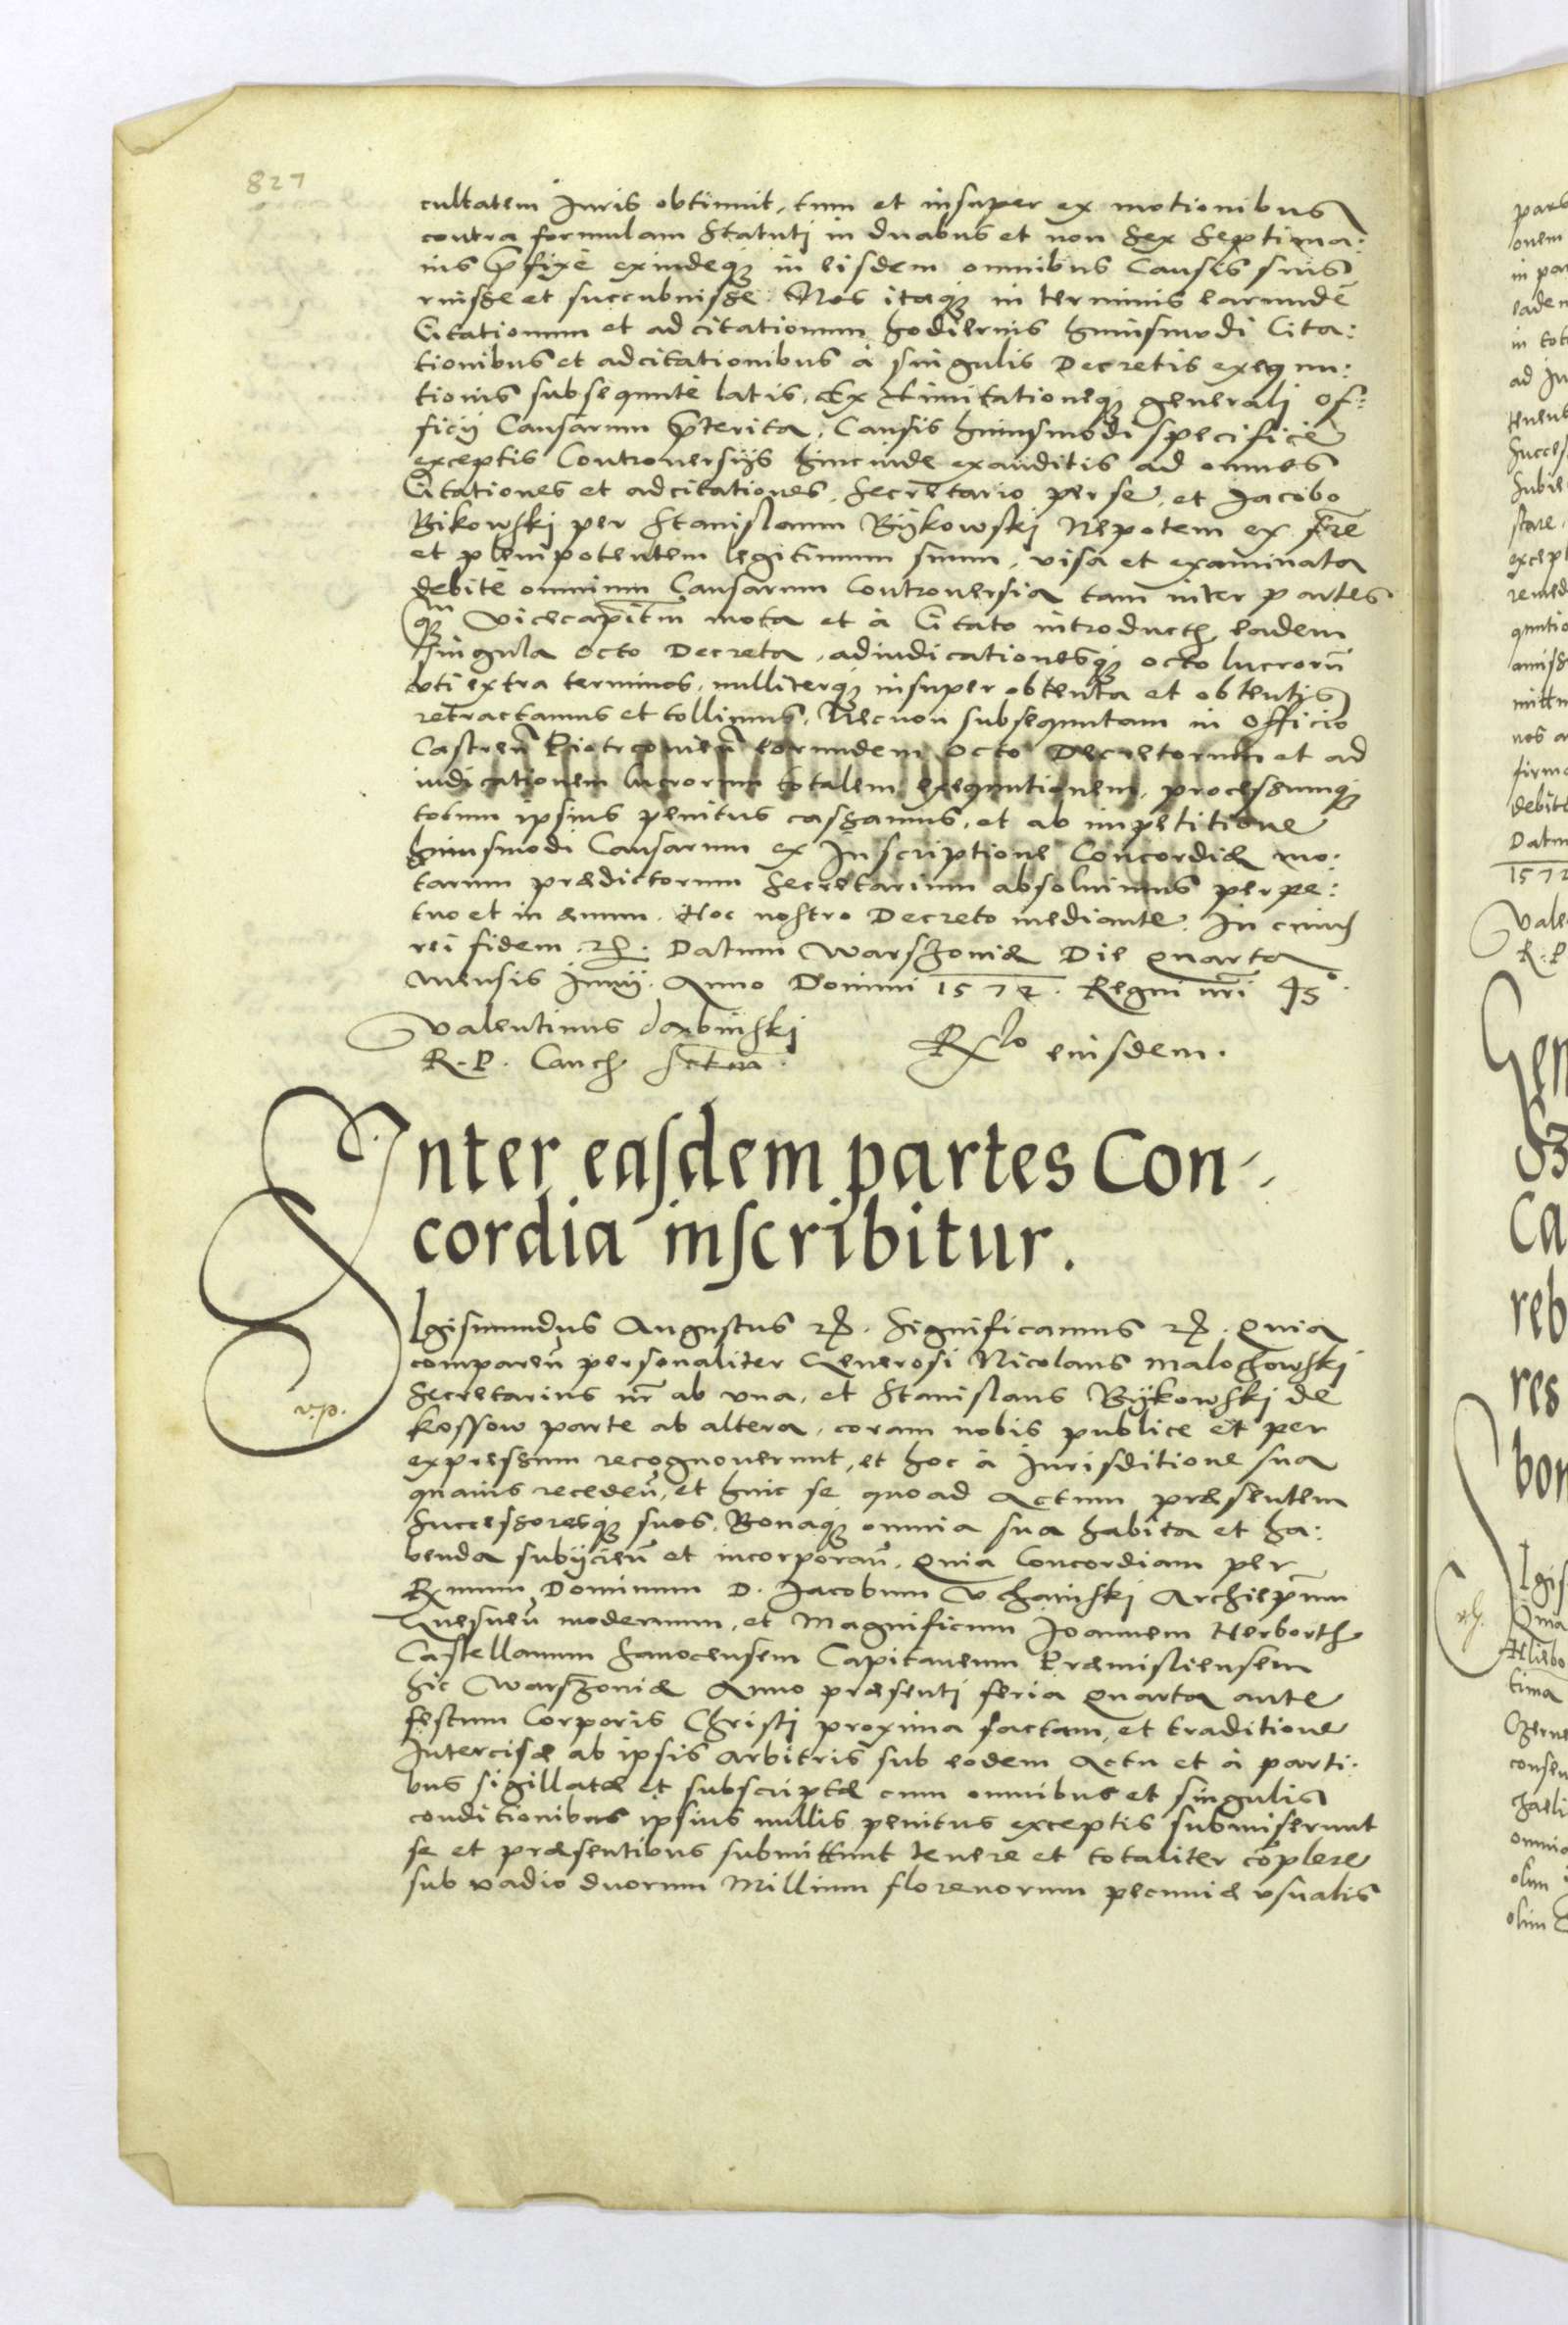 827
cultatem Juris obtinuit, tum et insuper ex motionibus
contra formulam Statutj in duabus et non Sex Septima:
nis p̄fixè exindeq̢ in eisdem omnibus Causis suis
ruisse et succubuisse. Nos itaq̢ in terminis earundē
Citationum et adcitationum hodiernis huiusmodi Cita:
tionibus et adcitationibus à singulis Decretis exequu:
tionis subsequutè latis, Ex Limitationeq̢ generalj of:
ficij Causarum p̄terita, Causis huiusmodi specificè
exceptis Controuersijs hincinde exauditis ad omnes
Citationes et adcitationes, Secretario per se, et Jacobo
Bikowskj per Stanislaum Bÿkowskj Nepotem ex fr̄e
et plenipotentem legitimum suum, visa et examinata
debitè omnium Causarum Controuersia tam inter partes
qm̄ q̢ vicecapitm̄ mota et à Citato introducta, eadem
singula octo Decreta, adiudicationesq̢ octo lucrorū
vti extra terminos, nulliterq̢ insuper obtenta et obtentis
retractamus et tollimus, Necnon subsequutam in officio
Castreñ Piotrconieñ eorundem octo Decretorum et ad
iudicationem lucrorum totalem exequutionem, processumq̢
totum ipsius penitus cassamus, et ab impetitione
huiusmodi Causarum ex Inscriptione Concordiæ mo:
tarum prædictorum Secretarium absoluimus perpe:
tuo et in æuum. Hoc nostro Decreto mediante. In cuius
rei fidem etc. Datum Warszouiæ Die Quarta
mensis Junij. Anno Domini 1572. Regni nr̄i 43°.
Valentinus Dӕbinskj
R. P. Canc.
R̄lo eiusdem.
Inter easdem partes Con-
cordia inscribitur.
Sigismundus Augustus etc. Significamus etc. Quia
compareñ personaliter Generosi Nicolaus Malochowskj
Secretarius nr̄ ab vna, et Stanislaus Bÿkowskj de
Kossow parte ab altera, coram nobis publicè et per
expressum recognouerunt, et hoc à Jurisditione sua
quauis recedeñ, et huic se quoad Actum præsentem
Successoresq̢ suos, Bonaq̢ omnia sua habita et ha:
v.p.
benda subijcieñ et incorporañ. Quia Concordiam per
Rmum Dominum D. Jacobum Vchanskj Archiep̄um
Gnesneñ modernum, et Magnificum Joannem Herborth
Castellanum Sanocensem Capitaneum Præmisliensem
hic Warszouiæ Anno præsentj feria Quarta ante
festum Corporis Christj proxima factam, et traditione
Intercisæ ab ipsis Arbitris sub eodem Actu et à parti:
bus sigillatæ et subscriptæ cum omnibus et singulis
conditionibus ipsius nullis penitus exceptis submiserunt
se et præsentibus submittunt tenere et totaliter cōplere
sub vadio duorum Millium florenorum pecuniæ vsualis